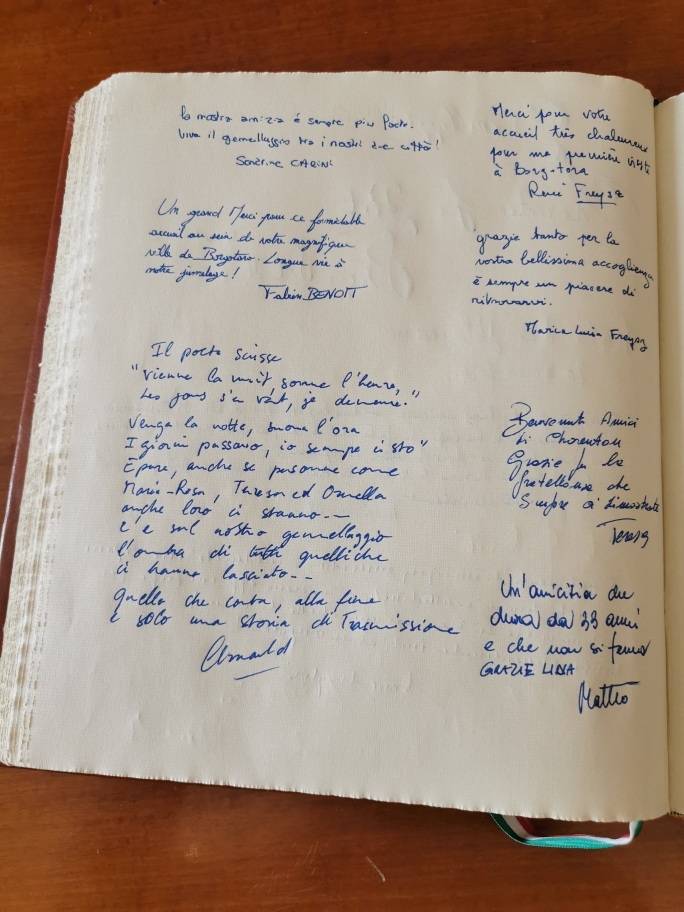 la nostra amizia é sempre piu forte.
Viva il gemellaggio tra i nostri due città!
Sandrine CARINI
Un grand Merci pour ce formidable
accueil au sein de votre magnifique
ville de Borgotaro. Longue vie à
notre jumelage!
Fabien BENOIT
Il poeta scrisse
"Vienne la nuit, sonne l'heure,
Les jours s'en vont, je demeure."
Venga la notte, suona l'ora
I giorni passano, io sempre ci sto"
Eppure, anche se persone come
Maria-Rosa, Teresa ed Ornella
anche loro ci stanno--
c'è sul nostro gemellaggio
l'ombra di tutti quelli che
ci hanno lasciato--
Quello che conta, alla fine
è solo una storia di Trasmissione
Arnaud
Merci pour votre
accueil très chaleureux
pour ma première visite
à Borgotora
René Freysz
grazie tanto per la
vostra bellissima accoglienza
è sempre un piacere di
ritrovarvi.
Maria Luisa Freysz
Benvenuti Amici
di Charenton
Grazie per la
fratellanza che
Sempre ci dimostrate
Teresa
Un'amicizia che
dura da 33 anni
e che non si ferma
GRAZIE LIDIA
Matteo